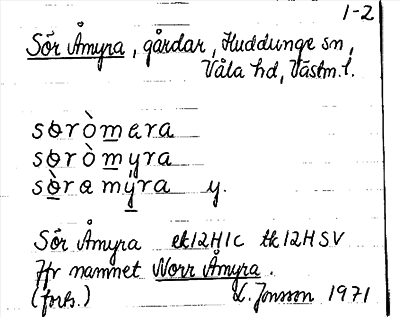 1-2
Sör Åmyra, gårdar, Huddunge sn,
Våla hd, Västm. l.
sɵròmɐra
sɵròmyra
sɵ̀rɐmýra y.
Sör Åmyra ek12H1C tk12HSV
Jfr namnet Norr Åmyra.
(forts.) L. Jonsson 1971